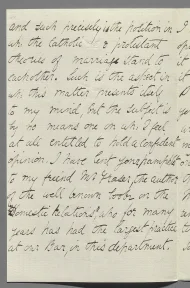 and such precisely is the position in
wh. the Catholic & protestant
theories of marriage stand to
each other. Such is the aspect in
wh. this matter presents itself
to my mind, but the subject is
by no means one on wh. I feel
at all entitled to hold a confident
opinion. I have sent your pamphlet
to my friend Mr Fraser, the author
of the well known book on the
"Domestic Relations", who for many
years has had the largest practice
at our Bar, in this department.